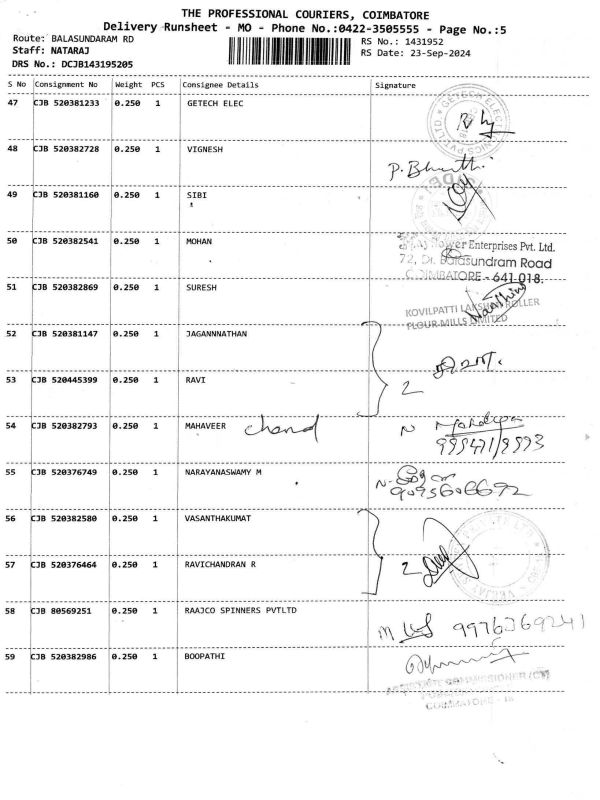 THE PROFESSIONAL COURIERS, COIMBATORE
Delivery Runsheet - MO - Phone No.:0422-3505555 - Page No.:5
Route: BALASUNDARAM RD
RS No.: 1431952
Staff: NATARAJ
RS Date: 23-Sep-2024
DRS No.: DCJB143195205
S No Consignment No Weight PCS Consignee Details Signature
47 CJB 520381233 0.250 1 GETECH ELEC
48 CJB 520382728 0.250 1 VIGNESH
P. Bharathi
49 CJB 520381160 0.250 1 SIBI
50 CJB 520382541 0.250 1 MOHAN
Power Enterprises Pvt. Ltd.
72, Dr. Balasundram Road
COIMBATORE - 641 018.
51 CJB 520382869 0.250 1 SURESH
KOVILPATTI LAKSHMI ROLLER
FLOUR MILLS LIMITED
52 CJB 520381147 0.250 1 JAGANNNATHAN
53 CJB 520445399 0.250 1 RAVI
2
54 CJB 520382793 0.250 1 MAHAVEER chand
N
55 CJB 520376749 0.250 1 NARAYANASWAMY M
9095606692
56 CJB 520382580 0.250 1 VASANTHAKUMAT
57 CJB 520376464 0.250 1 RAVICHANDRAN R
2
58 CJB 80569251 0.250 1 RAAJCO SPINNERS PVTLTD
9976369241
59 CJB 520382986 0.250 1 BOOPATHI
ASSISTANT COMMISSIONER (CT)
COIMBATORE - 18